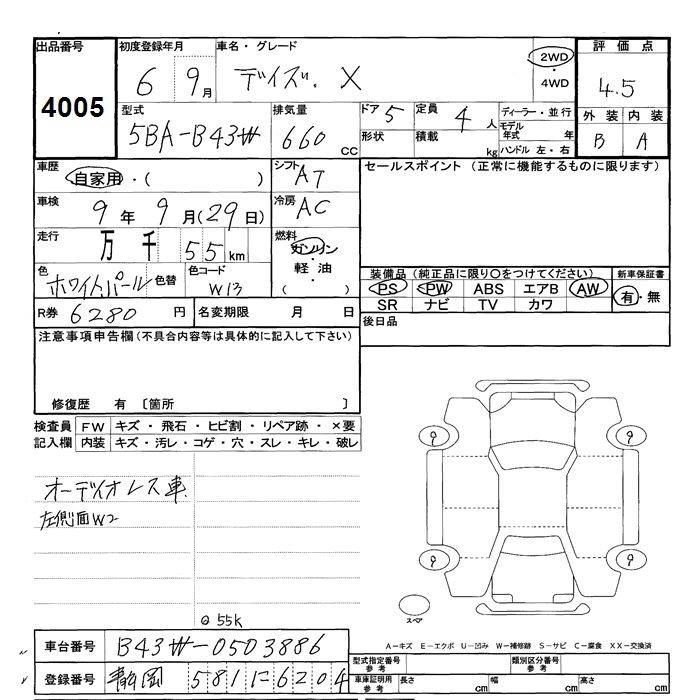 出品番号 初度登録年月 車名・グレード 評価点
4005 6 9月 デイズ. X 2WD・4WD 4.5
型式 排気量 ドア 5 定員 4人 ディーラー・並行 外装 内装
5BA-B43W 660 CC 形状 積載 kg モデル年式 年 B A
ハンドル 左・右
車歴 シフト AT セールスポイント (正常に機能するものに限ります)
自家用・( )
車検 冷房 AC
9年9月(29日)
走行 燃料
万千55km ガソリン・軽油・( )
色 色替 色コード 装備品(純正品に限り○をつけてください) 新車保証書
ホワイトパール W13 PS PW ABS エアB AW 有・無
SR ナビ TV カワ
R券 6280円 名変期限 月 日 後日品
注意事項申告欄(不具合内容等は具体的に記入して下さい)
修復歴 有 〔箇所 〕
検査員 FW キズ・飛石・ヒビ割・リペア跡・×要
記入欄 内装 キズ・汚レ・コゲ・穴・スレ・キレ・破レ
オーディオレス車
左側面W2
9 9
9 9
スペア
55k
A-キズ E-エクボ U-凹み W-補修跡 S-サビ C-腐食 XX-交換済
車台番号 B43W-0503886
型式指定番号 参考 類別区分番号 参考
登録番号 静岡 581 に 6204
車庫証明用 参考 長さ cm 幅 cm 高さ cm